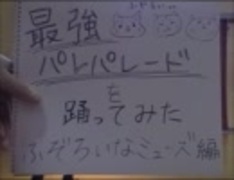 最強
パレパレード
を
踊ってみた
ふぞろいなミューズ編